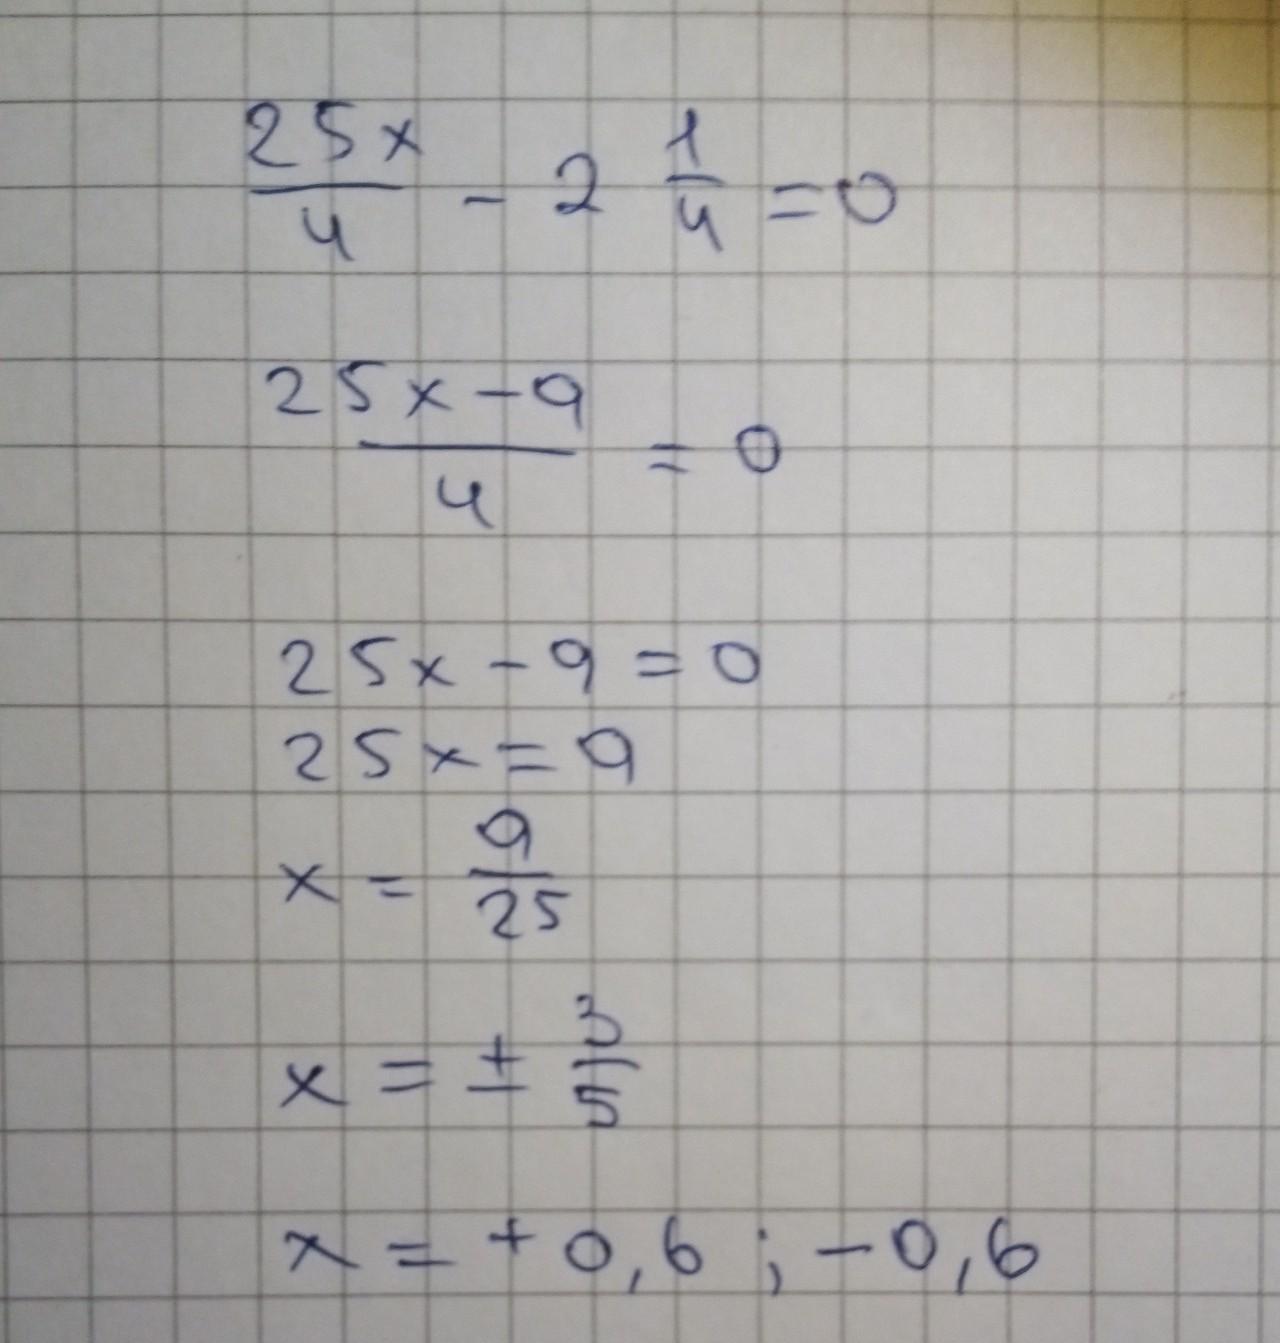 25x/4 - 2 1/4 = 0
25x - 9/4 = 0
25x - 9 = 0
25x = 9
x = 9/25
x = ± 3/5
x = + 0,6 ; - 0,6